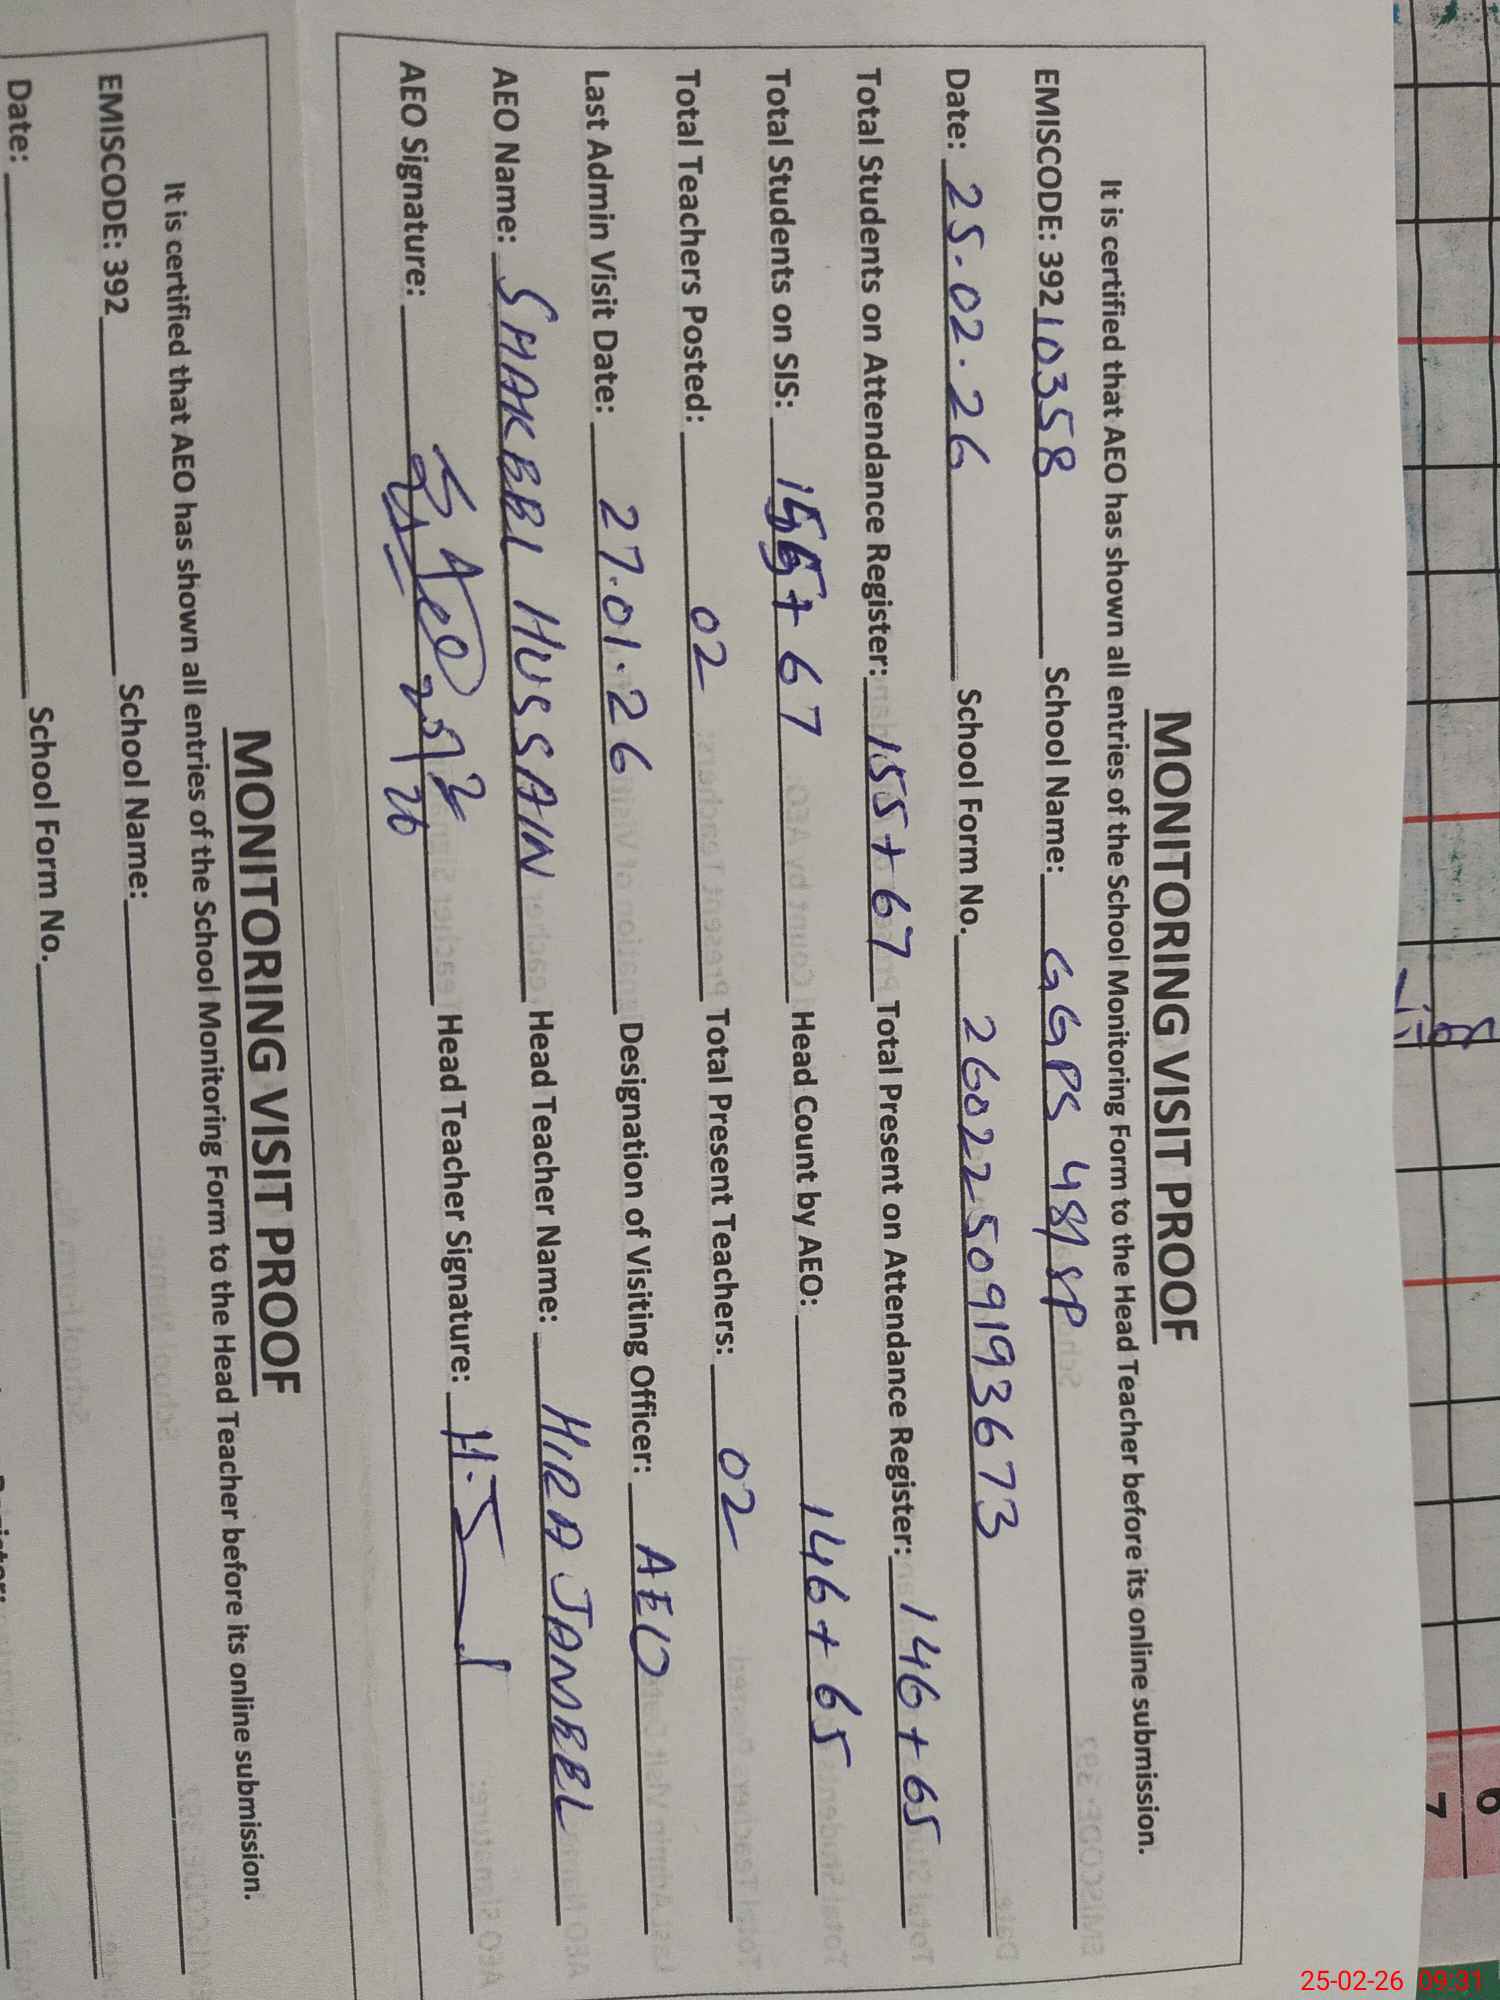 MONITORING VISIT PROOF
It is certified that AEO has shown all entries of the School Monitoring Form to the Head Teacher before its online submission.
EMISCODE: 39210358 School Name: GGPS 48/SP
Date: 25.02.26 School Form No. 26022509193673
Total Students on Attendance Register: 155+67 Total Present on Attendance Register: 146+65
Total Students on SIS: +67 Head Count by AEO: 146+65
Total Teachers Posted: 02 Total Present Teachers: 02
Last Admin Visit Date: 27.01.26 Designation of Visiting Officer: AEO
AEO Name: SHAKEEL HUSSAIN Head Teacher Name: HIRA JAMEEL
AEO Signature: Head Teacher Signature:
MONITORING VISIT PROOF
It is certified that AEO has shown all entries of the School Monitoring Form to the Head Teacher before its online submission.
EMISCODE: 392 School Name:
Date: School Form No.
6
7
25-02-26 09:31